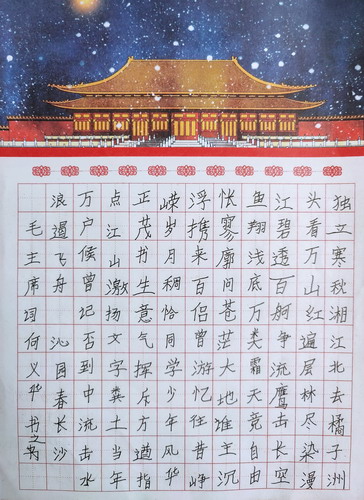 独立寒秋湘江北去橘子洲
头看万山红遍层林尽染漫
江碧透百舸争流鹰击长空
鱼翔浅底万类霜天竞自由
怅寥廓问苍茫大地谁主沉
浮携来百侣曾游忆往昔峥
嵘岁月稠恰同学少年风华
正茂书生意气挥斥方遒指
点江山激扬文字粪土当年
万户侯曾记否到中流击水
浪遏飞舟 沁园春长沙
毛主席词何义华书之